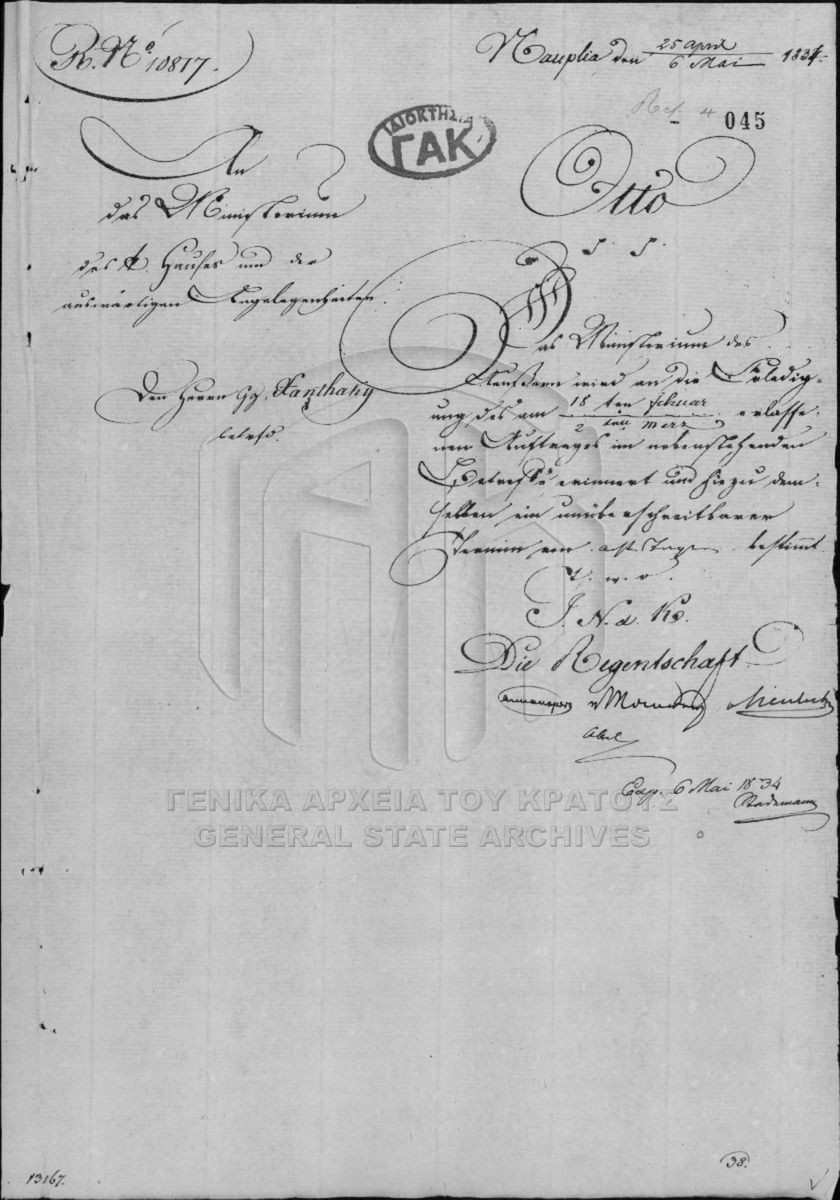 R. Nº 10817.
Nauplia den 25 April / 6 Mai 1834.
045
ΙΔΙΟΚΤΗΣΙΑ
ΓΑΚ
An
das Ministerium
des k. Hauses und der
auswärtigen Angelegenheiten.
Den Herrn Gg. Xanthaky
betrfd.
Otto
Das Ministerium des
Aeußern wird an die Erledig-
ung des am 18 ten Februar / 2 ten Merz erlasse-
nen Auftrages im nebenstehenden
Betreffe erinnert und hiezu dem-
selben ein unüberschreitbarer
Termin von acht Tagen bestimmt.
I. N. d. Ks.
Die Regentschaft
Abel
Exp. 6 Mai 1834
Stademann
ΓΕΝΙΚΑ ΑΡΧΕΙΑ ΤΟΥ ΚΡΑΤΟΥΣ
GENERAL STATE ARCHIVES
38.
13167.